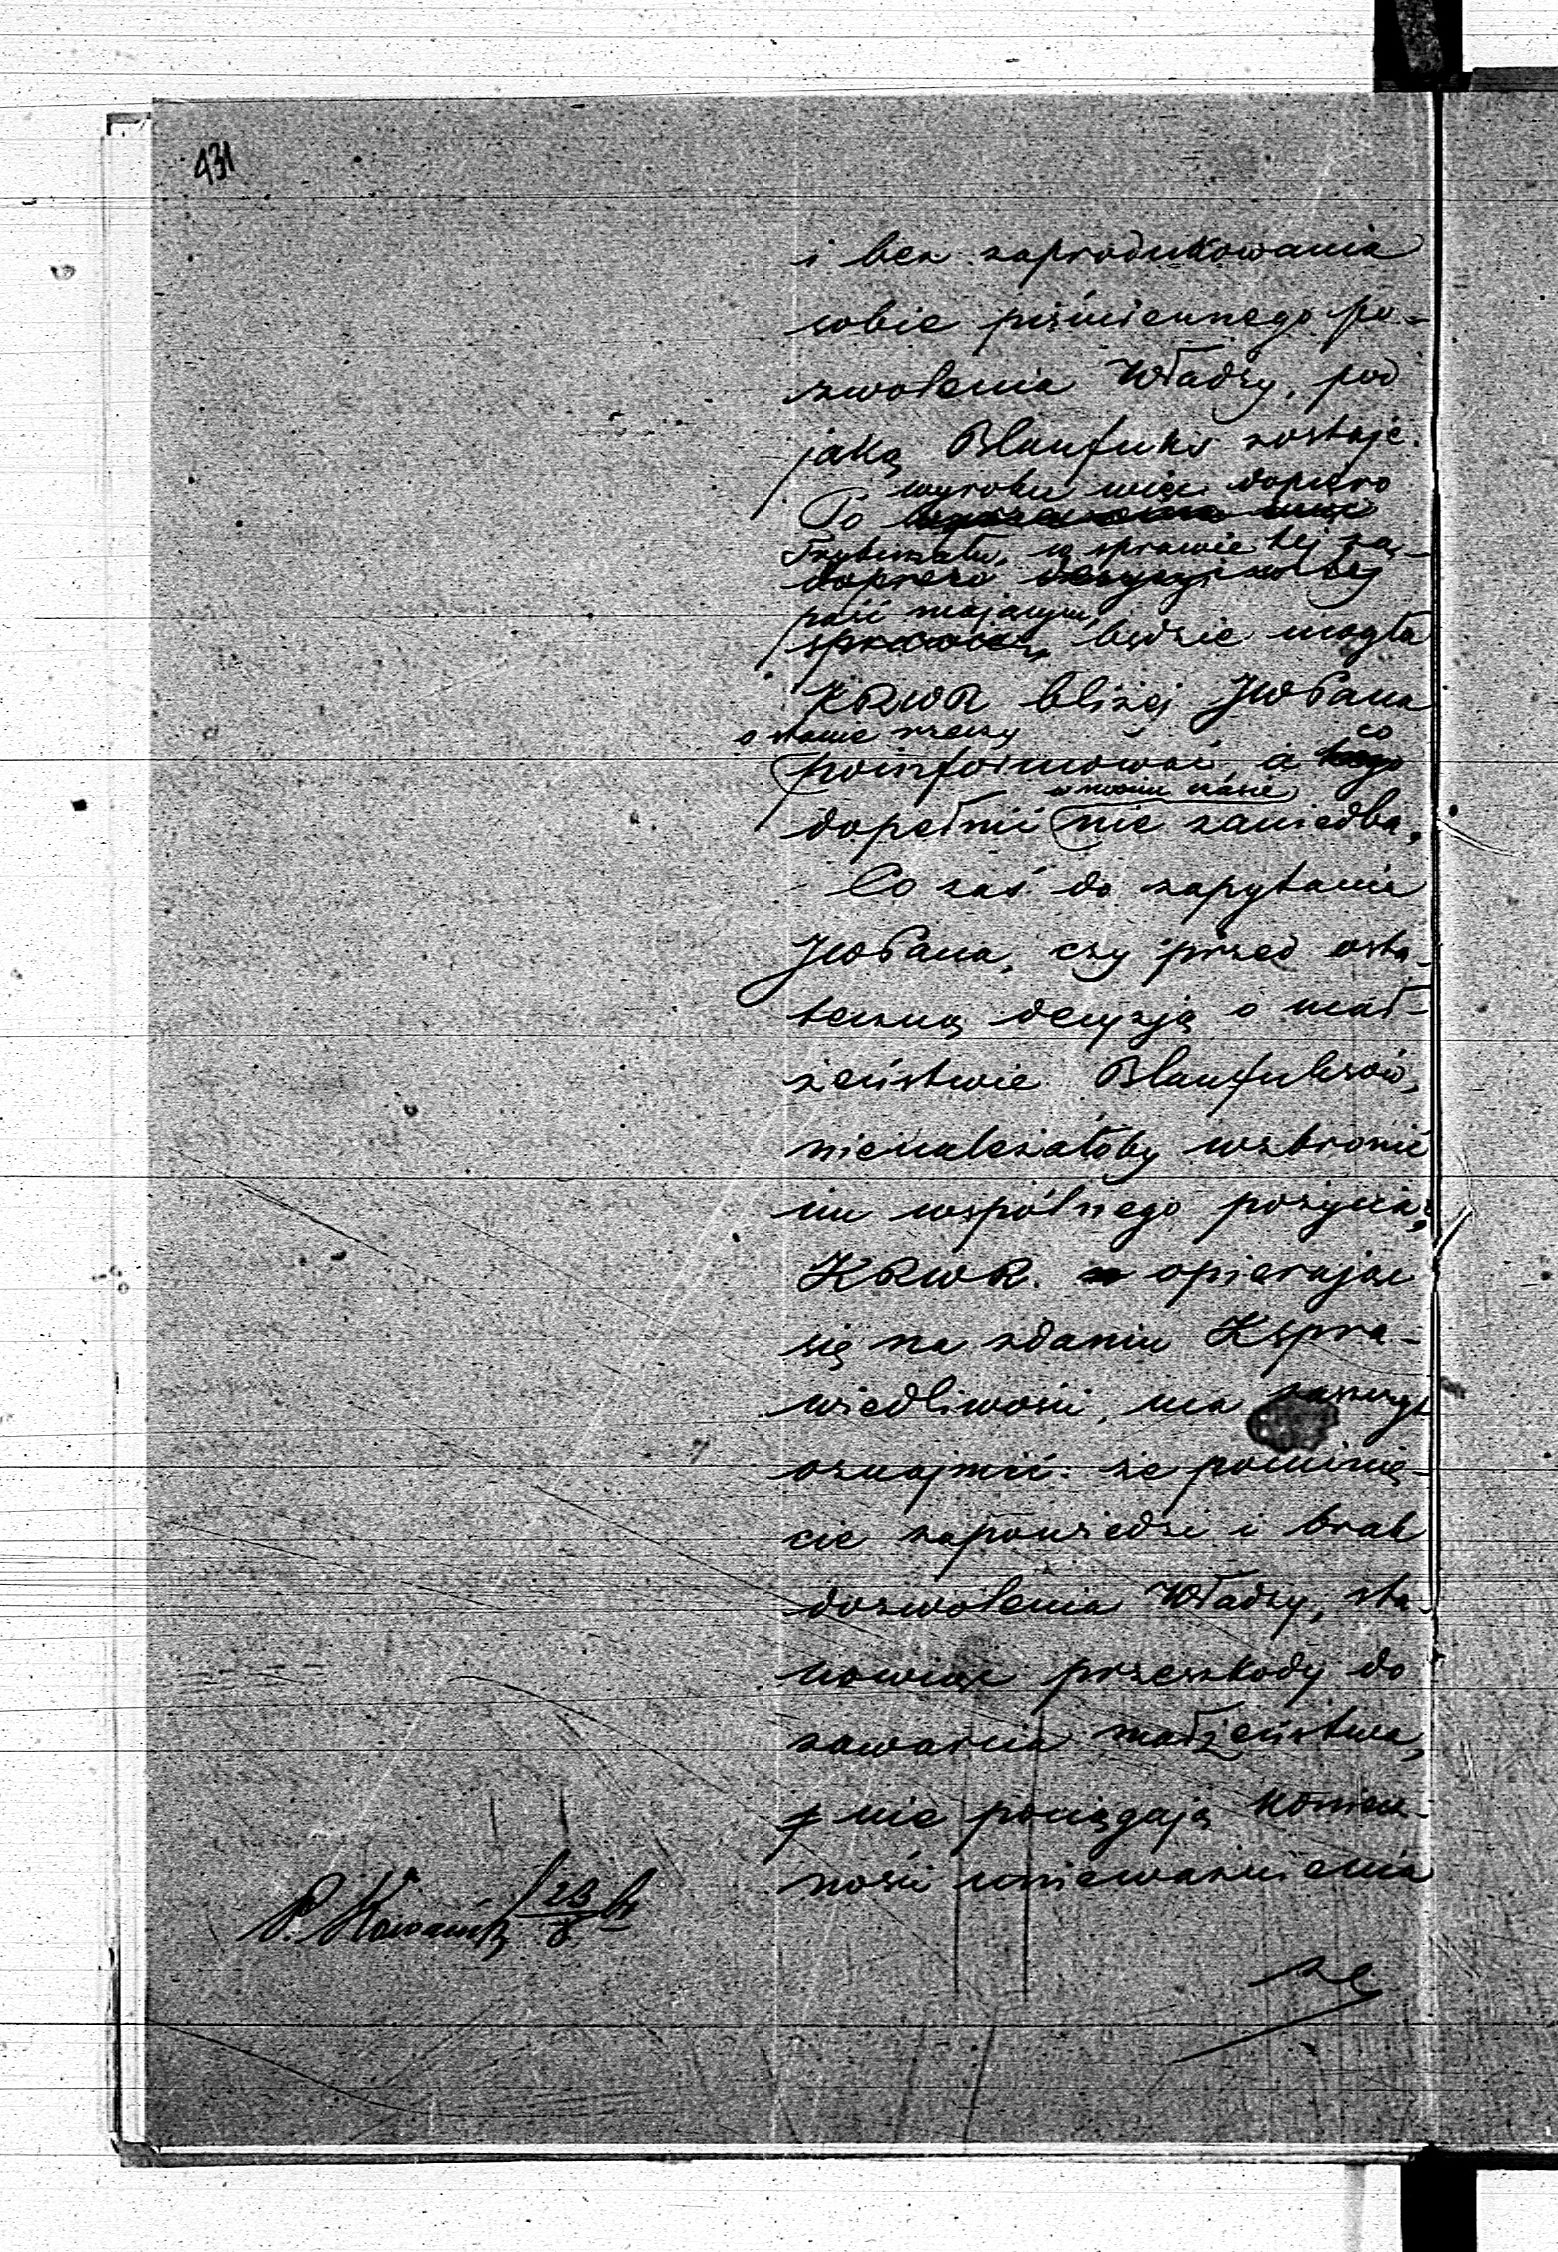 431
i bez zaprodukowania
sobie piśmiennego po-
zwolenia Władzy, pod
jaką Blaufuks zostaje.
wyroku więc dopiero
Po
Trybunału, w sprawie tej za-
dopiero decyzyi w tej
paść mającym,
sprawie, będzie mogła
KRWR bliżej JWPana
o stanie rzeczy co
poinformować, a
w swoim czasie
dopełnić nie zaniedba.
Co zaś do zapytania
JWPana, czy przed osta-
teczną decyzją o mał-
żeństwie Blaufuksów,
nienależałoby wzbronić
im wspólnego pożycia;
KRWR. opierając
się na zdaniu KSpra-
wiedliwości, ma zaszczyt
oznajmić: że pominię-
cie zapowiedzi i brak
dozwolenia Władzy, sta-
nowiąc przeszkody do
zawarcia małżeństwa,
nie pociągają koniecz-
ności unieważnienia
ze